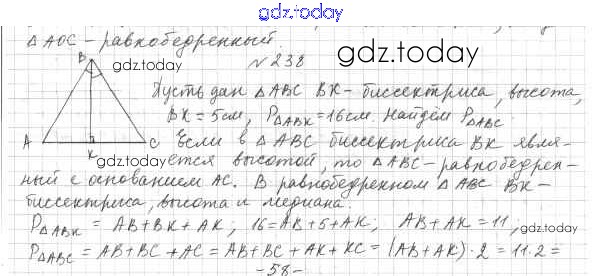 gdz.today
△AOC – равнобедренный.
№ 238
gdz.today
B
gdz.today
Пусть дан △ABC BK – биссектриса, высота,
BK = 5см, P△ABK = 16см. Найдём P△ABC.
A K C
Если в △ABC биссектриса BK явля-
gdz.today
ется высотой, то △ABC – равнобедрен-
ный с основанием AC. В равнобедренном △ABC BK –
биссектриса, высота и медиана.
P△ABK = AB + BK + AK; 16 = AB + 5 + AK; AB + AK = 11,
gdz.today
P△ABC = AB + BC + AC = AB + BC + AK + KC = (AB + AK) · 2 = 11 · 2 =
gdz.today
– 58 –